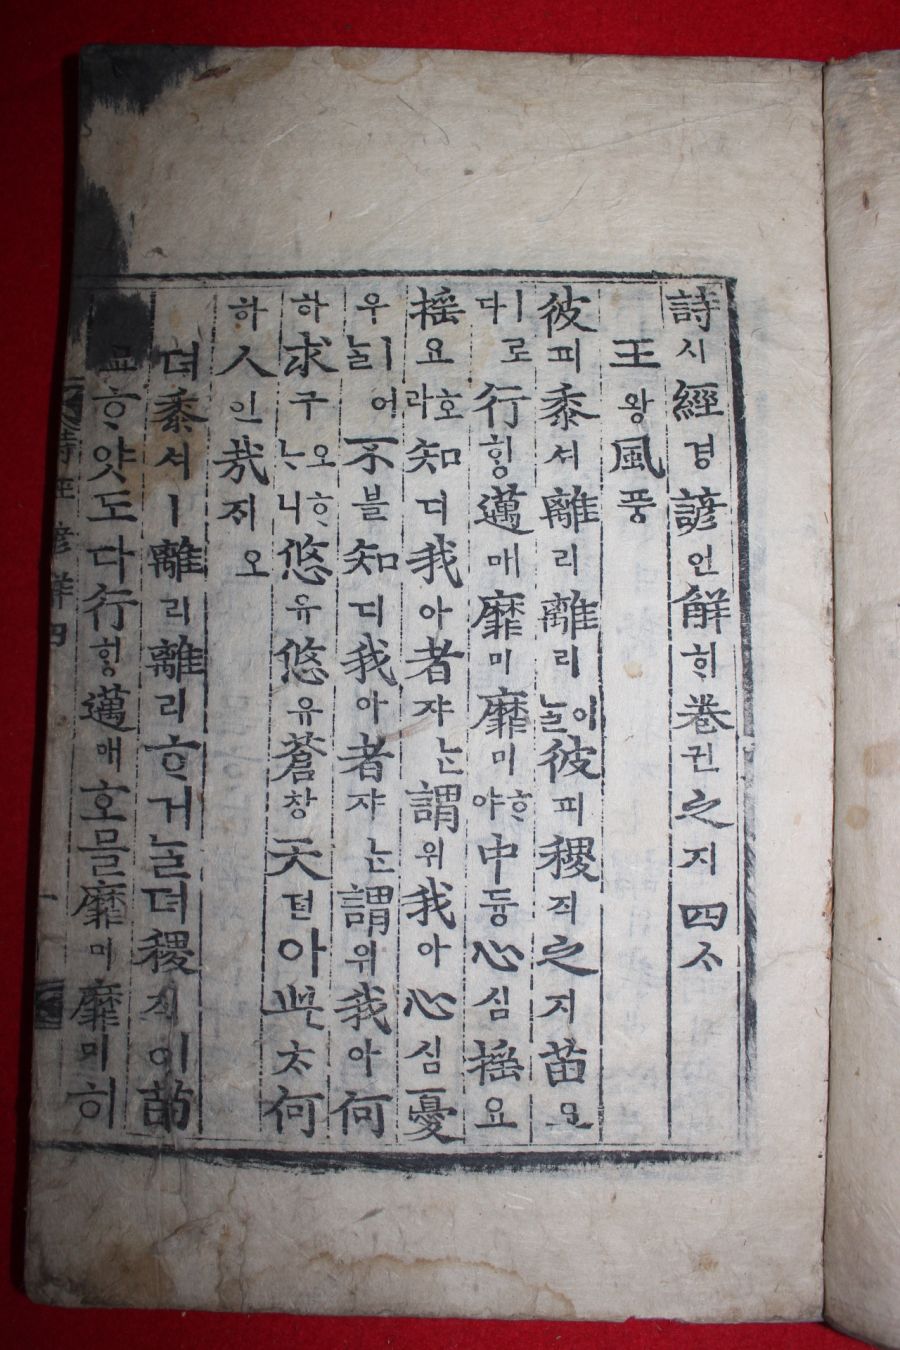 詩시經경諺언解ᄒᆡ卷권之지四ᄉᆞ
王왕風풍
彼피黍셔離리離리이ᄂᆞᆯ彼피稷직之지苗묘
ㅣ로다行ᄒᆡᆼ邁매靡미靡미ᄒᆞ야中듕心심搖요
搖요호라知디我아者쟈ᄂᆞᆫ謂위我아心심憂
우ㅣ어ᄂᆞᆯ不블知디我아者쟈ᄂᆞᆫ謂위我아何
하求구오ᄒᆞᄂᆞ니悠유悠유蒼창天텬아此ᄎᆞ何
하人인哉ᄌᆡ오
뎌黍셔ㅣ離리離리ᄒᆞ거ᄂᆞᆯ뎌稷직이苗
묘ᄒᆞ얏도다行ᄒᆡᆼ邁매호믈靡미靡미히
詩經諺解四 一